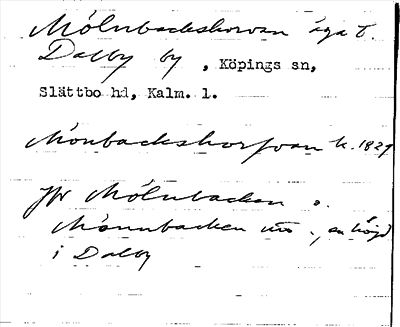 Mölnbackshorvan äga t.
Dalby by, Köpings sn,
Slättbo hd, Kalm. l.
Mönbackshorfvan k. 1829
Jfr Mölnbacken o.
Mönnbacken , en höjd
i Dalby